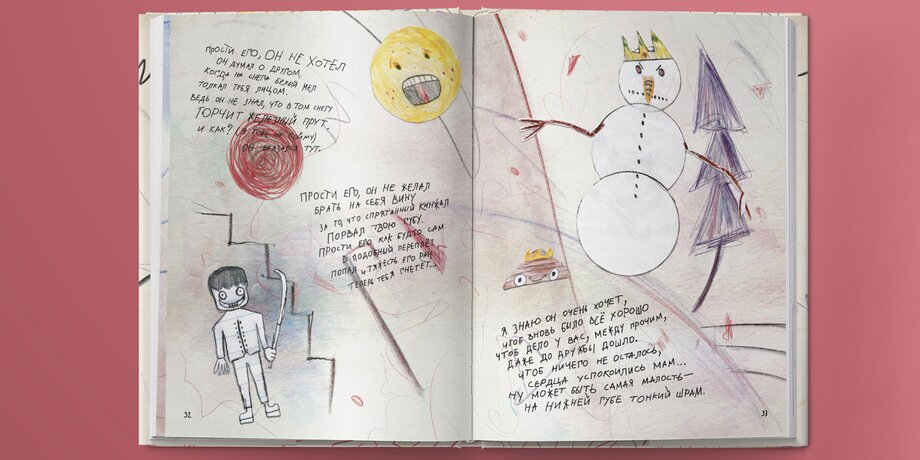 ПРОСТИ ЕГО, ОН НЕ ХОТЕЛ
ОН ДУМАЛ О ДРУГОМ,
КОГДА НА СНЕГА БЕЛЫЙ МЕЛ
ТОЛКАЛ ТЕБЯ ЛИЦОМ.
ВЕДЬ ОН НЕ ЗНАЛ, ЧТО В ТОМ СНЕГУ
ТОРЧИТ ЖЕЛЕЗНЫЙ ПРУТ.
И КАК? (Я ТОЖЕ НЕ ПОЙМУ)
ОН ОКАЗАЛСЯ ТУТ.
ПРОСТИ ЕГО, ОН НЕ ЖЕЛАЛ
БРАТЬ НА СЕБЯ ВИНУ
ЗА ТО, ЧТО СПРЯТАННЫЙ КИНЖАЛ
ПОРВАЛ ТВОЮ ГУБУ.
ПРОСТИ ЕГО, КАК БУДТО САМ
В ПОДОБНЫЙ ПЕРЕПЛЁТ
ПОПАЛ И ТЯЖЕСТЬ ЕГО РАН
ТЕПЕРЬ ТЕБЯ ГНЕТЁТ...
32
Я ЗНАЮ ОН ОЧЕНЬ ХОЧЕТ,
ЧТОБ ВНОВЬ БЫЛО ВСЁ ХОРОШО
ЧТОБ ДЕЛО У ВАС, МЕЖДУ ПРОЧИМ,
ДАЖЕ ДО ДРУЖБЫ ДОШЛО.
ЧТОБ НИЧЕГО НЕ ОСТАЛОСЬ,
СЕРДЦА УСПОКОИЛИСЬ МАМ...
НУ МОЖЕТ БЫТЬ САМАЯ МАЛОСТЬ —
НА НИЖНЕЙ ГУБЕ ТОНКИЙ ШРАМ.
33